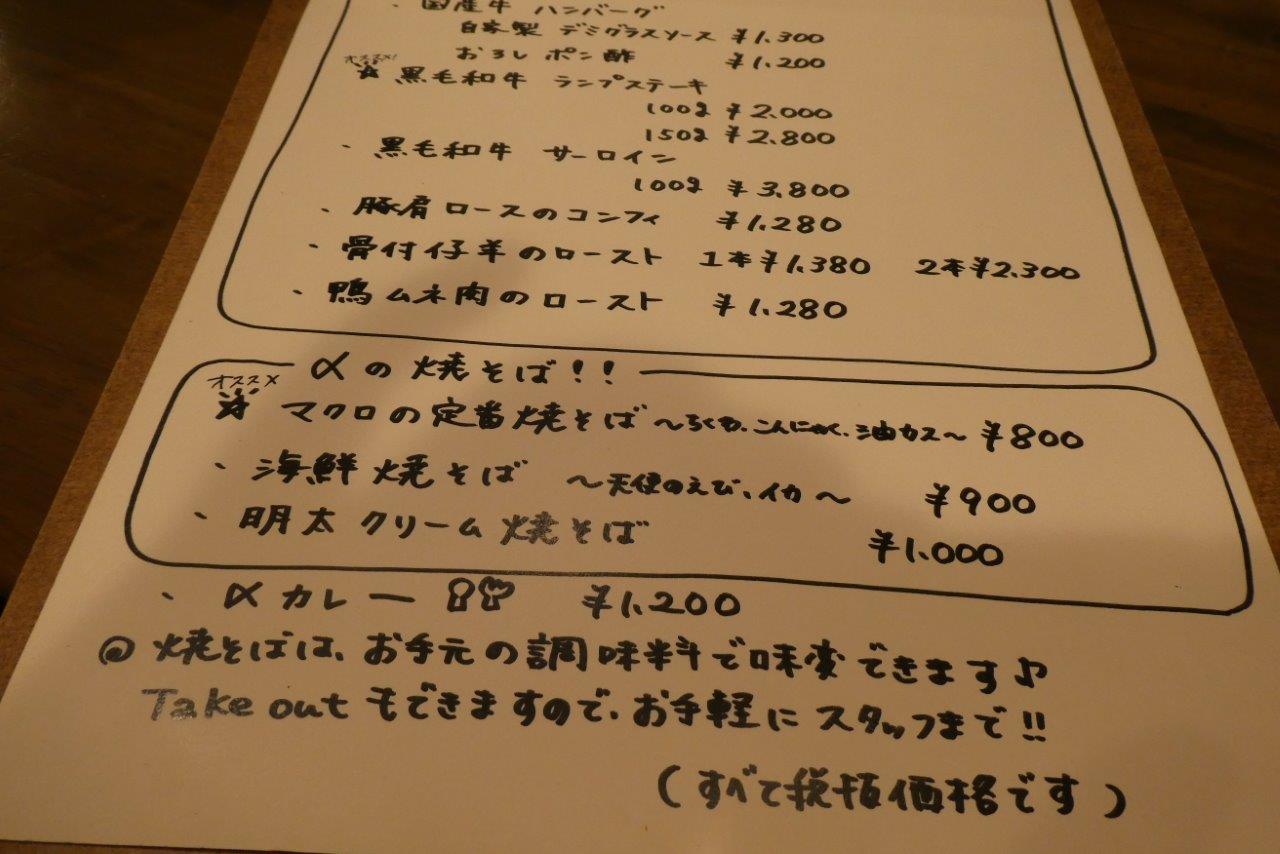 ・国産牛 ハンバーグ
自家製 デミグラスソース ¥1,300
おろし ポン酢 ¥1,200
オススメ!
☆黒毛和牛 ランプステーキ
100g ¥2,000
150g ¥2,800
・黒毛和牛 サーロイン
100g ¥3,800
・豚肩ロースのコンフィ ¥1,280
・骨付仔羊のロースト 1本¥1,380 2本¥2,300
・鴨ムネ肉のロースト ¥1,280
〆の焼そば!!
オススメ
☆マクロの定番焼そば〜ちくわ、こんにゃく、油カス〜 ¥800
・海鮮焼そば 〜天使のえび、イカ〜 ¥900
・明太クリーム焼そば ¥1,000
・〆カレー ¥1,200
◎焼そばは、お手元の調味料で味変できます♪
Take outもできますので、お手軽にスタッフまで!!
(すべて税抜価格です)